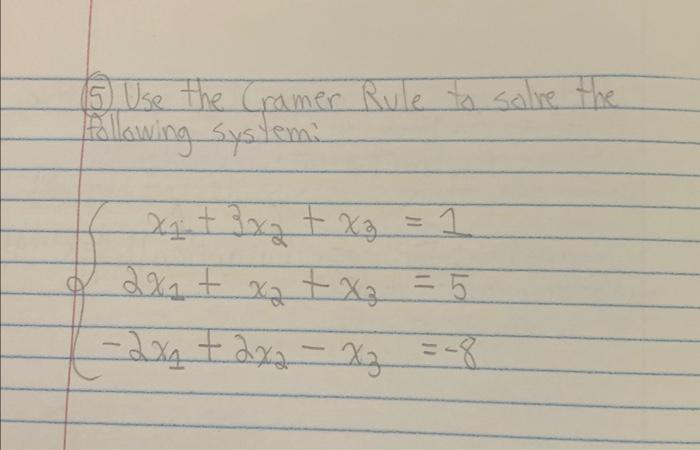 ⑤ Use the Cramer Rule to solve the
following system:
x₁ + 3x₂ + x₃ = 1
2x₁ + x₂ + x₃ = 5
-2x₁ + 2x₂ - x₃ = -8